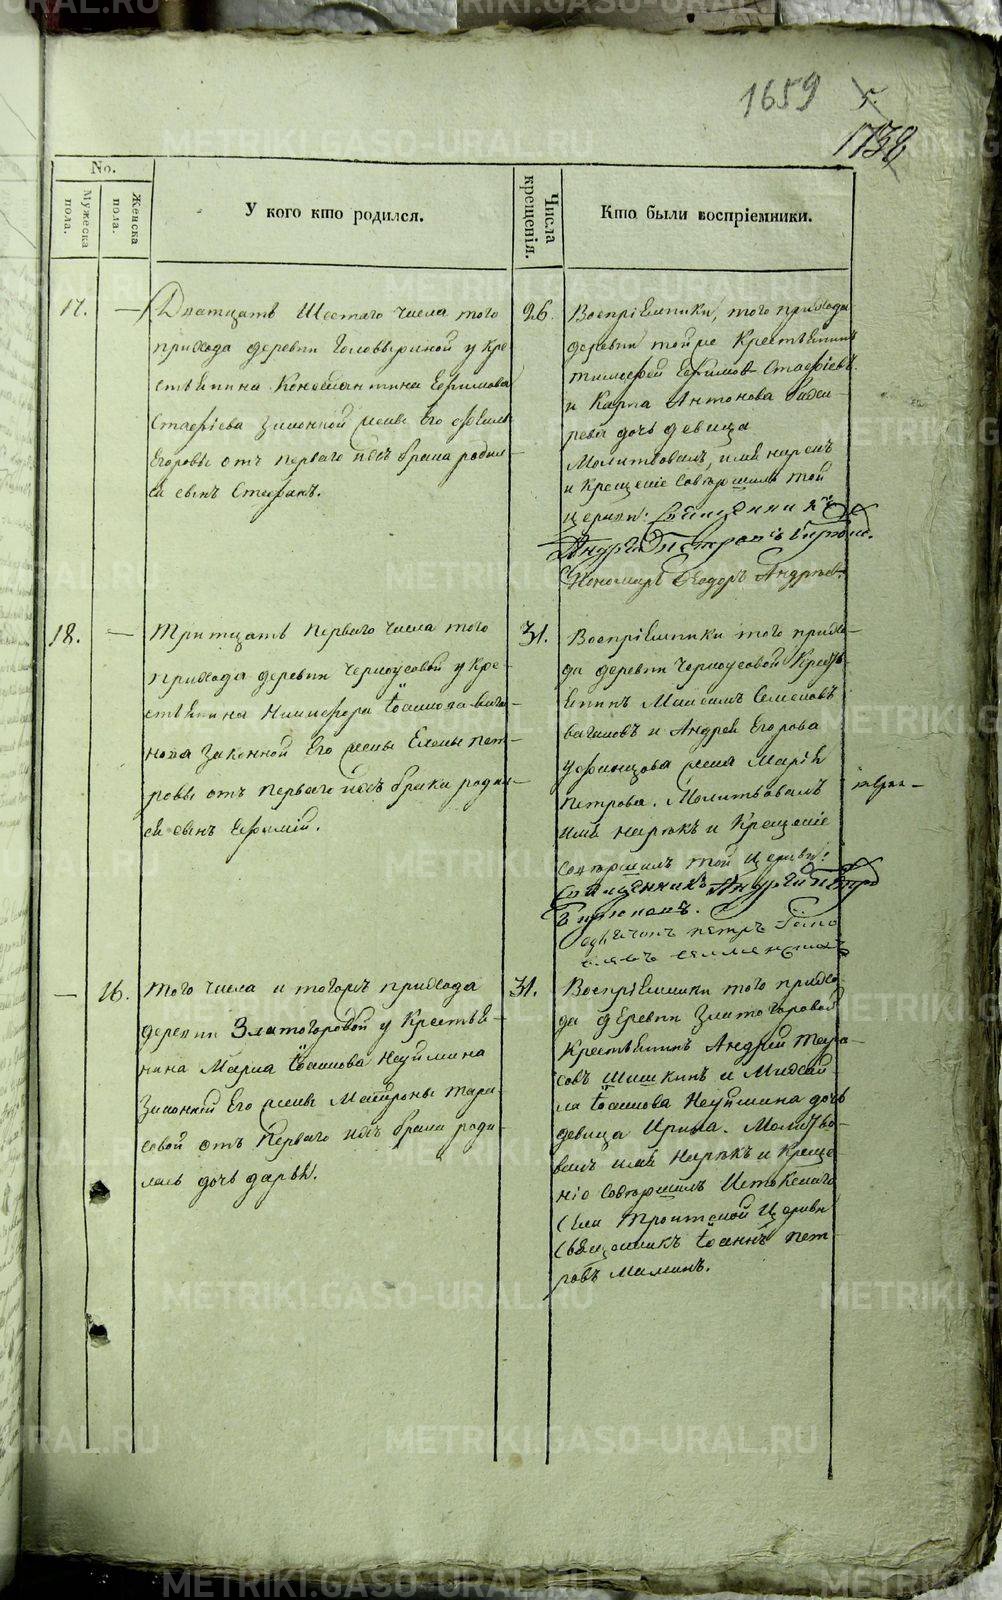 1659
1738
No.
Мужеска пола.
Женска пола.
У кого кто родился.
Числа крещенія.
Кто были воспріемники.
17.
Дватцать Шестаго числа того
прихода деревни Головыриной у Кре
стьянина Константина Ефимова
законной жены его
Егоровы отъ перваго ихъ брака родил
ся сынъ Стефанъ.
26.
Воспріемники, того прихода
деревни тойже Крестьянинъ
Тимофей Ефимов
и Карпа Антонова
рева дочь девица
Молитвовалъ, имя нарекъ
и Крещеніе совершилъ той
церкви: Священникъ
Андрей Петровъ
Пономарь Феодоръ Андреев
18.
Тритцать перваго числа того
прихода деревни Черноусовой у Кре-
стьянина Никифора Іоаннова Вага-
нова законной Его жены Елены Пет-
ровы отъ перваго ихъ брака родил-
ся сынъ Ефимій.
31.
Воспріемники того прихо-
да деревни Черноусовой Кресть
янинъ Максимъ Семеновъ
Вагановъ и Андрея Егорова
Уфинцова жена Марія
Петрова. Молитвовалъ
имя Нарекъ и Крещеніе
совершилъ той церкви:
Священникъ Андрей Петро
Дьячонъ Петръ
16.
Того числа и тогожъ прихода
деревни Златогоровой у Крестья-
нина Марка Іоаннова Неуймина
Законной Его жены Матроны Тара-
совой отъ перваго ихъ брака роди-
лась дочь Дарья.
31.
Воспріемники того прихо
да деревни Златогоровой
Крестьянинъ Андрей Тара-
совъ Шишкинъ и Михай-
ла Іоаннова Неуймина дочь
девица Ирина. Молитво-
валъ имя Нарекъ и Креще-
ніе совершилъ Истокскаго
Села Троитской Церкви
Священникъ Іоаннъ Пет-
ровъ Маминъ.
METRIKI.GASO-URAL.RU